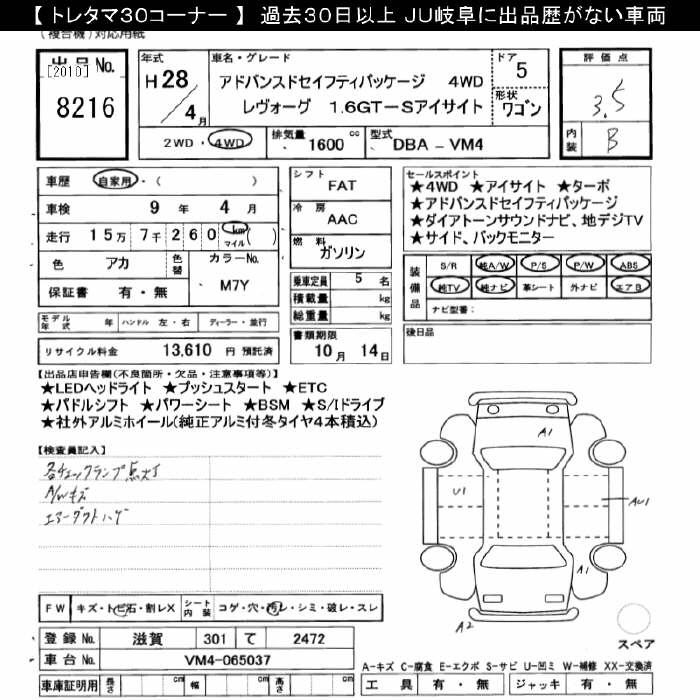 【 トレタマ30コーナー 】 過去30日以上 JU岐阜に出品歴がない車両
(複合機)対応用紙
出品No.
[2010]
8216
年式
H28/4月
車名・グレード
アドバンスドセイフティパッケージ 4WD
レヴォーグ 1.6GT-Sアイサイト
ドア
5
形状
ワゴン
評価点
3.5
内装
B
2WD・4WD
排気量 1600 cc
型式 DBA - VM4
車歴 自家用・( )
車検 9年 4月
走行 15万 7千 260 km マイル ( )
色 アカ
色替
カラーNo.
M7Y
保証書 有・無
シフト
FAT
冷房
AAC
燃料
ガソリン
乗車定員 5名
積載量 kg
総重量 kg
セールスポイント
★4WD ★アイサイト ★ターボ
★アドバンスドセイフティパッケージ
★ダイアトーンサウンドナビ、地デジTV
★サイド、バックモニター
装備品
S/R 純A/W P/S P/W ABS
純TV 純ナビ 革シート 外ナビ エアB
ナビ型番:
モデル年式 年 ハンドル 左・右 ディーラー・並行
リサイクル料金 13,610 円 預託済
書類期限
10月 14日
後日品
【出品店申告欄(不良箇所・欠品・注意事項等)】
★LEDヘッドライト ★プッシュスタート ★ETC
★パドルシフト ★パワーシート ★BSM ★S/Iドライブ
★社外アルミホイール(純正アルミ付冬タイヤ4本積込)
【検査員記入】
各チェックランプ点灯
A/Wキズ
エアーダクトハゲ
A1
U1
AU1
A1
A2
スペア
FW キズ・トビ石・割レX
シート内装 コゲ・穴・汚レ・シミ・破レ・スレ
登録No. 滋賀 301 て 2472
車台No. VM4-065037
車庫証明用 長さ cm 幅 cm 高さ cm
A-キズ C-腐食 E-エクボ S-サビ U-凹ミ W-補修 XX-交換済
工具 有・無 ジャッキ 有・無